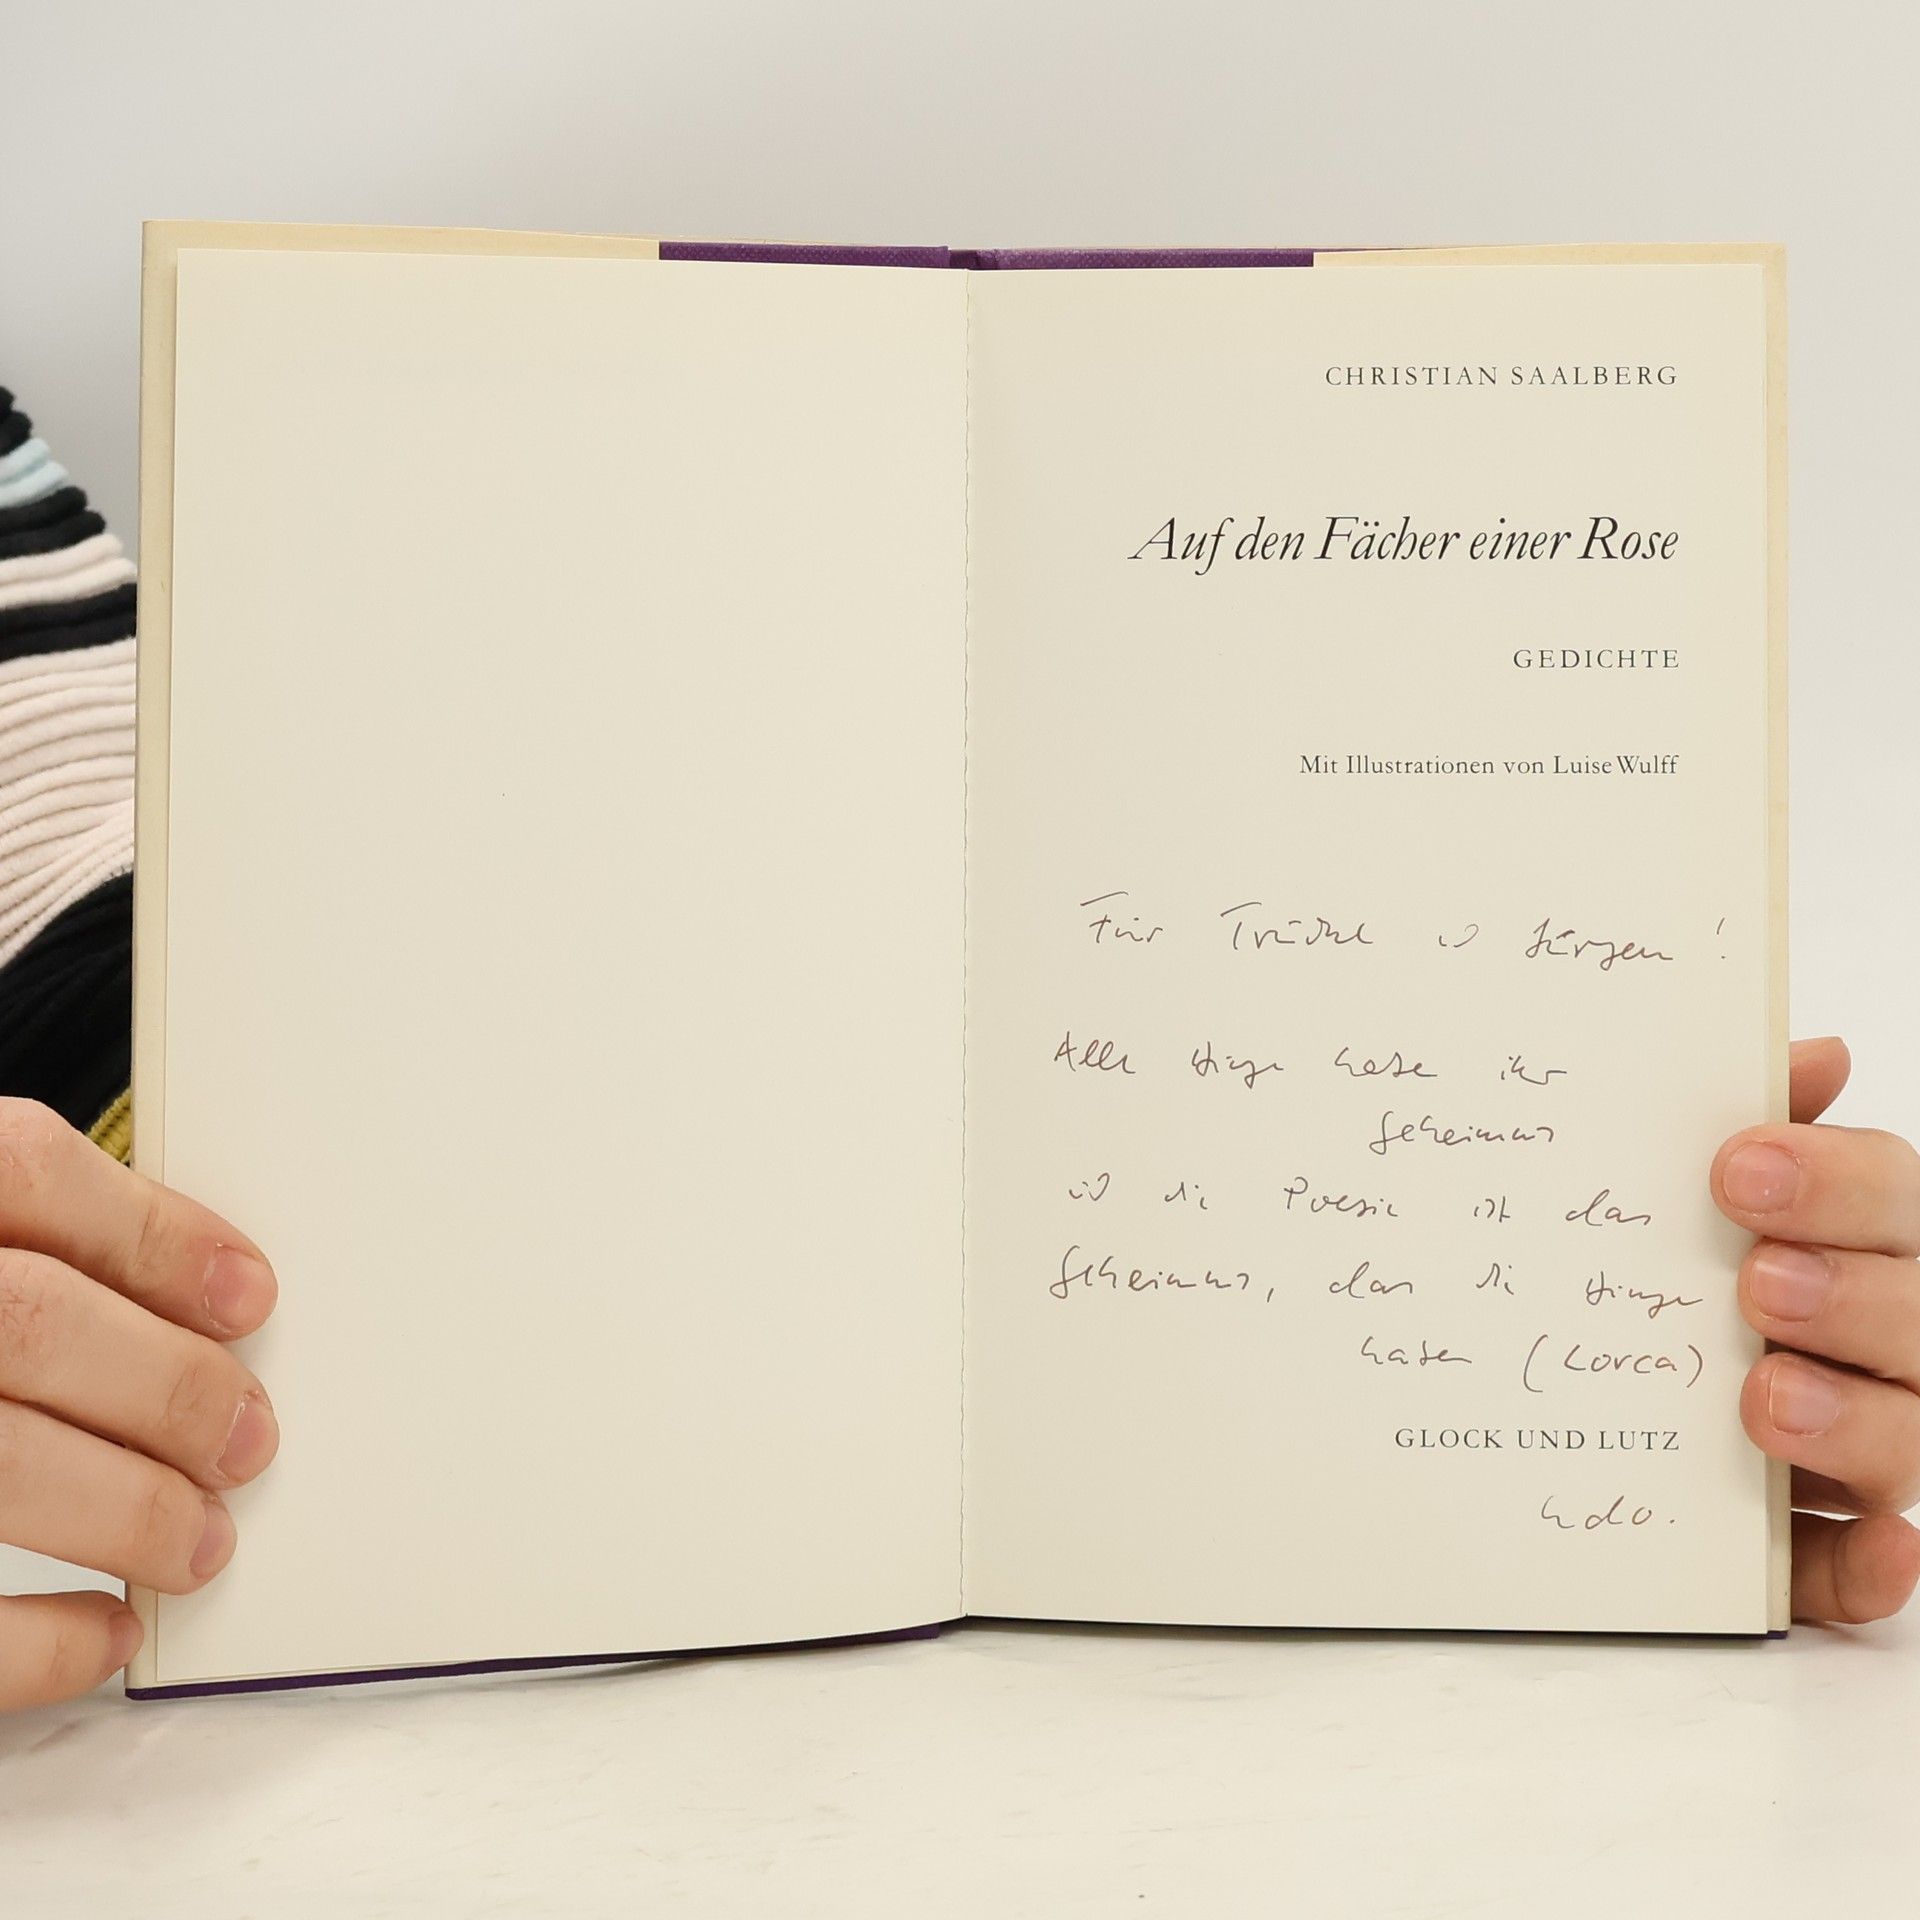 CHRISTIAN SAALBERG
Auf den Fächer einer Rose
GEDICHTE
Mit Illustrationen von Luise Wulff
Für Trudel u Jürgen!
Alle Dinge haben ihr
Geheimnis
und die Poesie ist das
Geheimnis, das die Dinge
haben (Lorca)
GLOCK UND LUTZ
Udo.